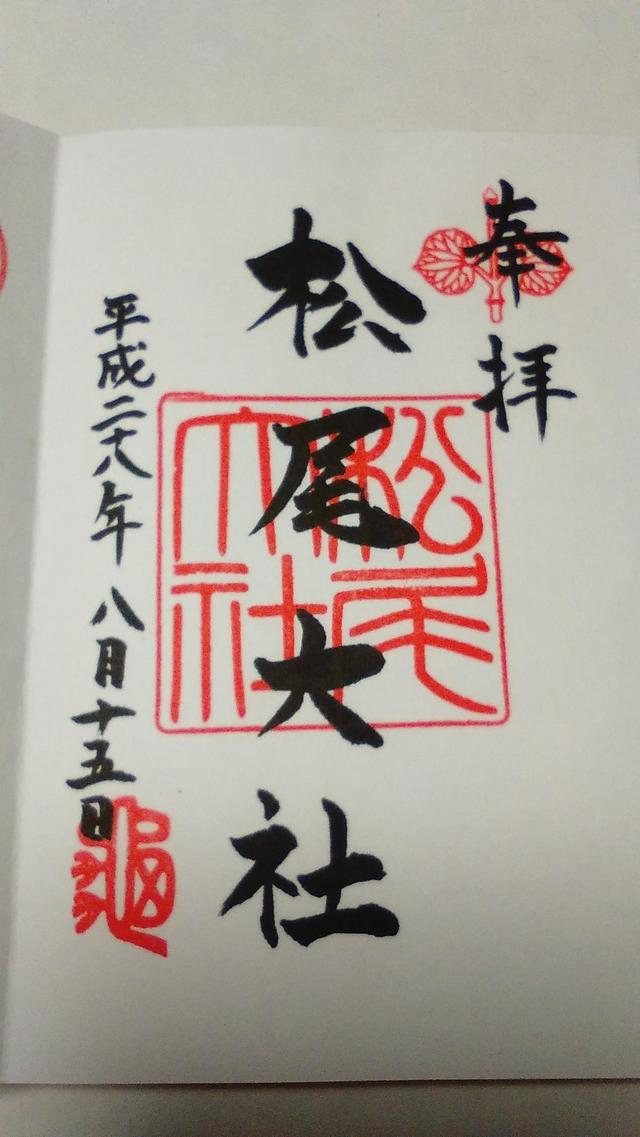 奉拝
松尾大社
松尾大社
平成二十八年八月十五日
龜